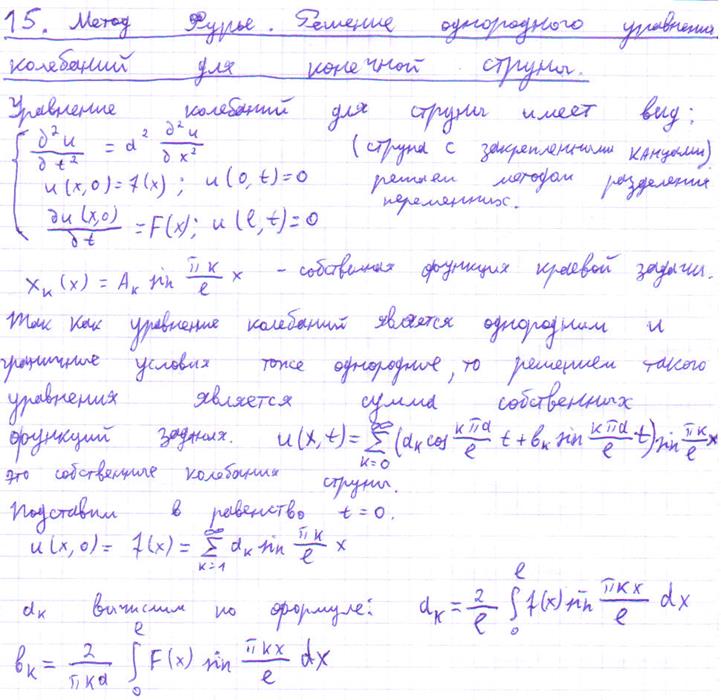 15. Метод Фурье. Решение однородного уравнения
колебаний для конечной струны.
Уравнение колебаний для струны имеет вид:
∂²u/∂t² = d² ∂²u/∂x² (струна с закрепленными канцами).
u(x,0)=f(x); u(0,t)=0 решаем методом разделения
переменных.
∂u(x,0)/∂t = F(x); u(l,t)=0
X_k(x) = A_k sin (πk/l) x - собственная функция краевой задачи.
Так как уравнение колебаний является однородным и
граничные условия тоже однородные, то решением такого
уравнения является сумма собственных
функций задачи. u(x,t) = ∑_{k=0}^{∞} (d_k cos (kπd/l) t + b_k sin (kπd/l) t) sin (πk/l) x
это собственные колебания струны.
Подставим в равенство t=0.
u(x,0) = f(x) = ∑_{k=1}^{∞} d_k sin (πk/l) x
d_k вычислим по формуле: d_k = 2/l ∫_0^l f(x) sin (πkx/l) dx
b_k = 2/(πkd) ∫_0^l F(x) sin (πkx/l) dx